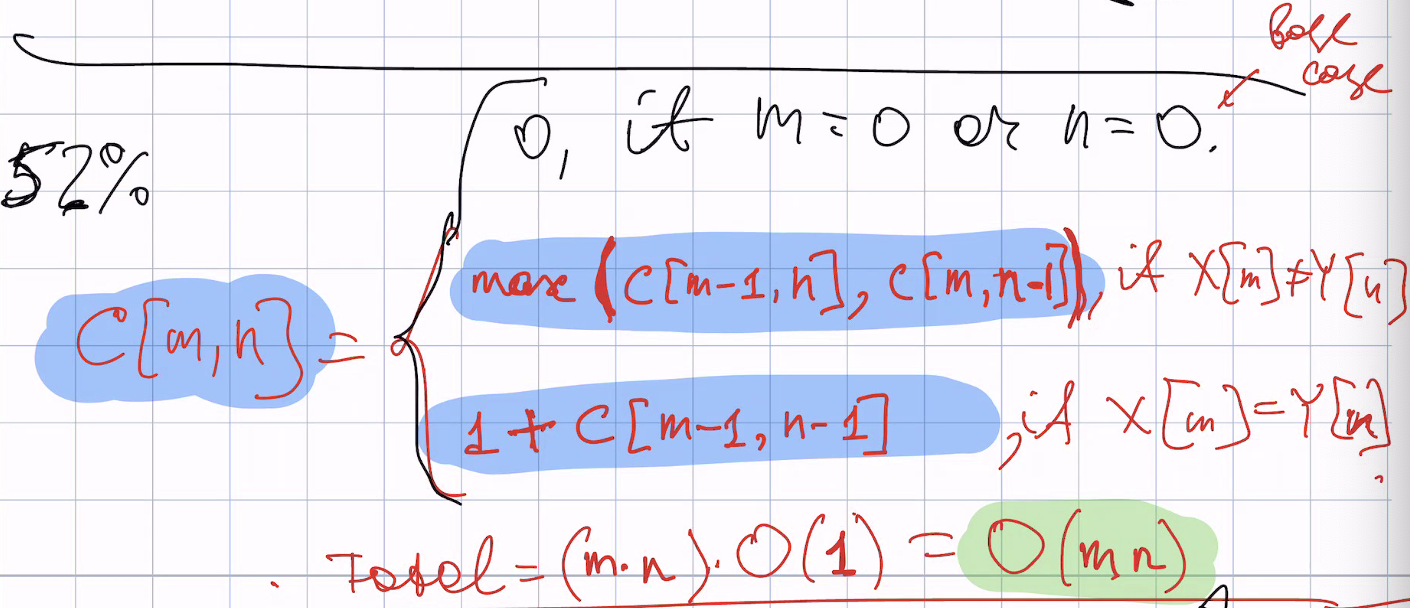 Base
case
0, if m = 0 or n = 0.
52%
max (C[m-1, n], C[m, n-1]), if X[m] ≠ Y[n]
C[m, n] =
1 + C[m-1, n-1] , if X[m] = Y[n].
Total = (m·n)·O(1) = O(mn)